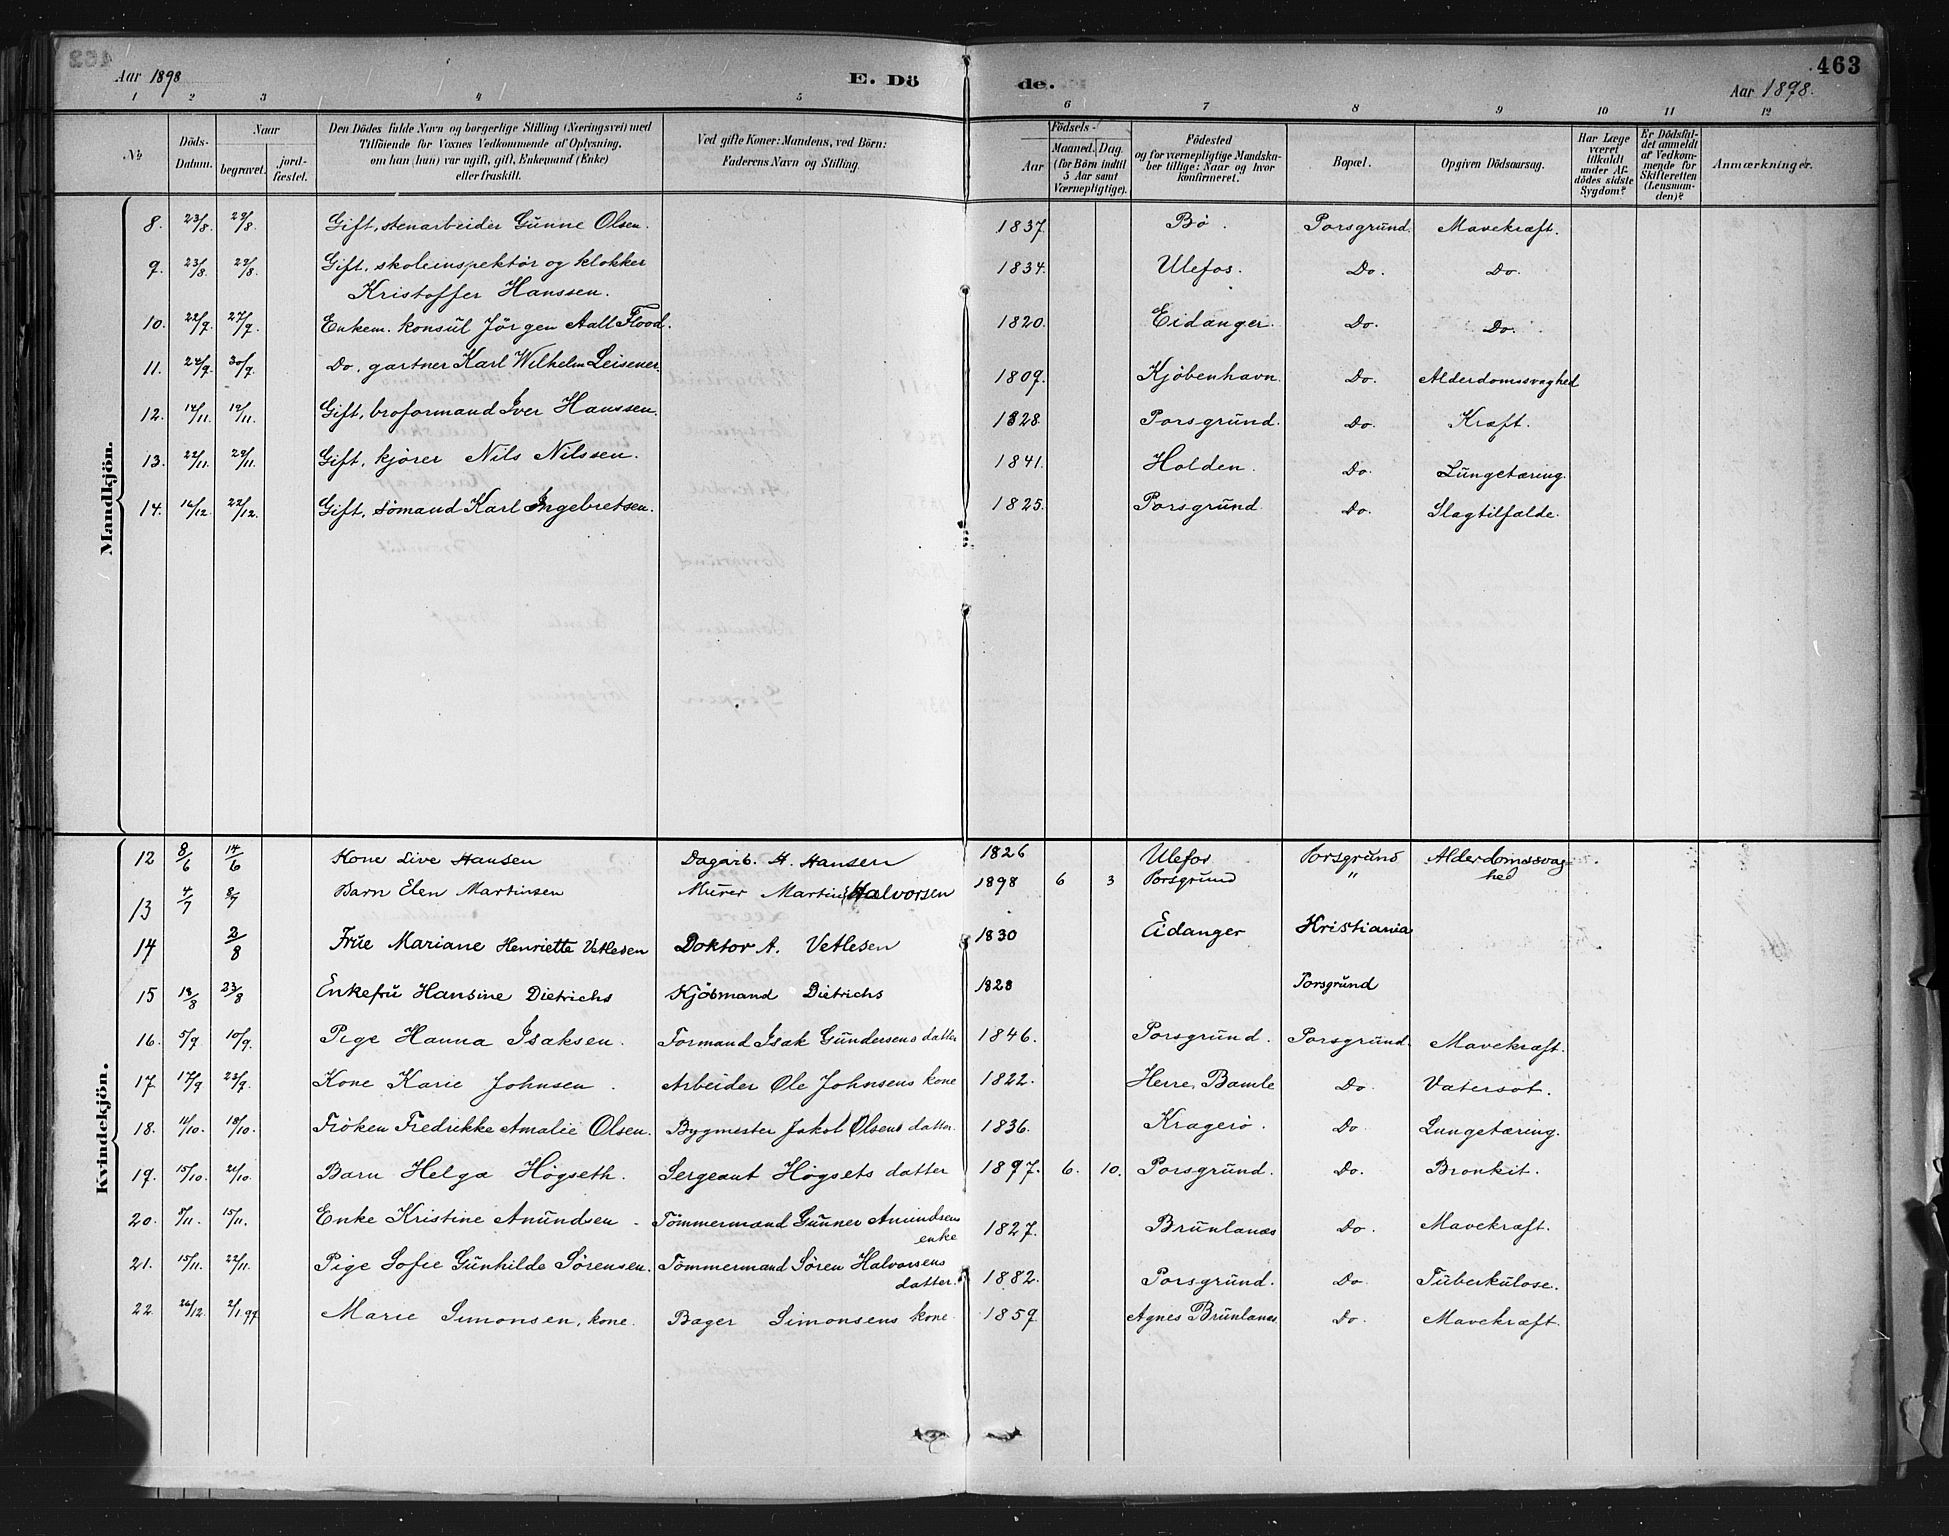 463
Aar 1898
E. Dö
de.
Aar 1898.
1 2 3 4 5 6 7 8 9 10 11 12
No
Döds-Datum.
Naar
begravet.
jord-fæstet.
Den Dödes fulde Navn og borgerlige Stilling (Næringsvei) med
Tilföiende for Voxnes Vedkommende af Oplysning,
om han (hun) var ugift, gift, Enkemand (Enke)
eller fraskilt.
Ved gifte Koner: Mandens, ved Börn:
Faderens Navn og Stilling.
Födsels-
Aar
Maaned. Dag.
(for Börn indtil
5 Aar samt
Værnepligtige).
Födested
og for værnepligtige Mandska-
ber tillige: Naar og hvor
konfirmeret.
Bopæl.
Opgiven Dödsaarsag.
Har Læge
været
tilkaldt
under Af-
dödes sidste
Sygdom?
Er Dödsfal-
det anmeldt
af Vedkom-
mende for
Skifteretten
(Lensman-
den)?
Anmærkninger.
Mandkjön.
8. 23/8. 29/8. Gift, stenarbeider Gunne Olsen. 1837 Bø. Porsgrund. Mavekræft.
9. 23/8. 29/8. Gift, skoleinspektør og klokker
Kristoffer Hanssen. 1834. Ulefos. Do. Do.
10. 22/9. 27/9. Enkem. konsul Jörgen Aall Flood. 1820. Eidanger. Do. Do.
11. 24/9. 30/9. Do. gartner Karl Wilhelm Leisener. 1809. Kjöbenhavn. Do. Alderdomssvaghed
12. 14/11. 19/11. Gift, broformand Iver Hanssen. 1828. Porsgrund. Do. Kræft.
13. 22/11. 29/11. Gift, kjörer Nils Nilssen. 1841. Holden. Do. Lungetæring.
14. 16/12. 22/12. Gift, sömand Karl Ingebretsen. 1825. Porsgrund. Do. Slagtilfælde.
Kvindekjön.
12 8/6 14/6 Kone Live Hansen Dagarb. H. Hansen 1826 Ulefos Porsgrund Alderdomssvag=
hed
13 4/7 8/7 Barn Elen Martinsen Murer Martin Halvorsen 1898 6 3 Porsgrund "
14 2/8 Frue Mariane Henriette Vetlesen Doktor A. Vetlesen 1830 Eidanger Kristiania
15 18/8 23/8 Enkefru Hansine Dietrichs Kjöbmand Dietrichs 1828 Porsgrund
16. 5/9 10/9. Pige Hanna Isaksen. Formand Isak Gundersens datter 1846. Porsgrund. Porsgrund. Mavekræft.
17 17/9 23/9. Kone Karie Johnsen. Arbeider Ole Johnsens kone 1822. Herre, Bamle Do. Vatersot.
18. 11/10. 18/10. Fröken Fredrikke Amalie Olsen. Bygmester Jakob Olsens datter. 1836. Kragerö. Do. Lungetæring.
19. 15/10. 21/10. Barn Helga Högseth. Sergeant Högsets datter 1897. 6. 10. Porsgrund. Do. Bronkit.
20. 9/11. 15/11. Enke Kristine Anundsen Tömmermand Gunner Anundsens
enke 1827. Brunlanæs Do. Mavekræft.
21. 15/11. 22/11. Pige Sofie Gunhilde Sörensen. Tömmermand Sören Halvorsens
datter. 1882. Porsgrund. Do. Tuberkulose.
22. 26/12. 2/1 99 Marie Simonsen, kone. Bager Simonsens kone. 1859. Agnes Brunlanæs Do. Mavekræft.